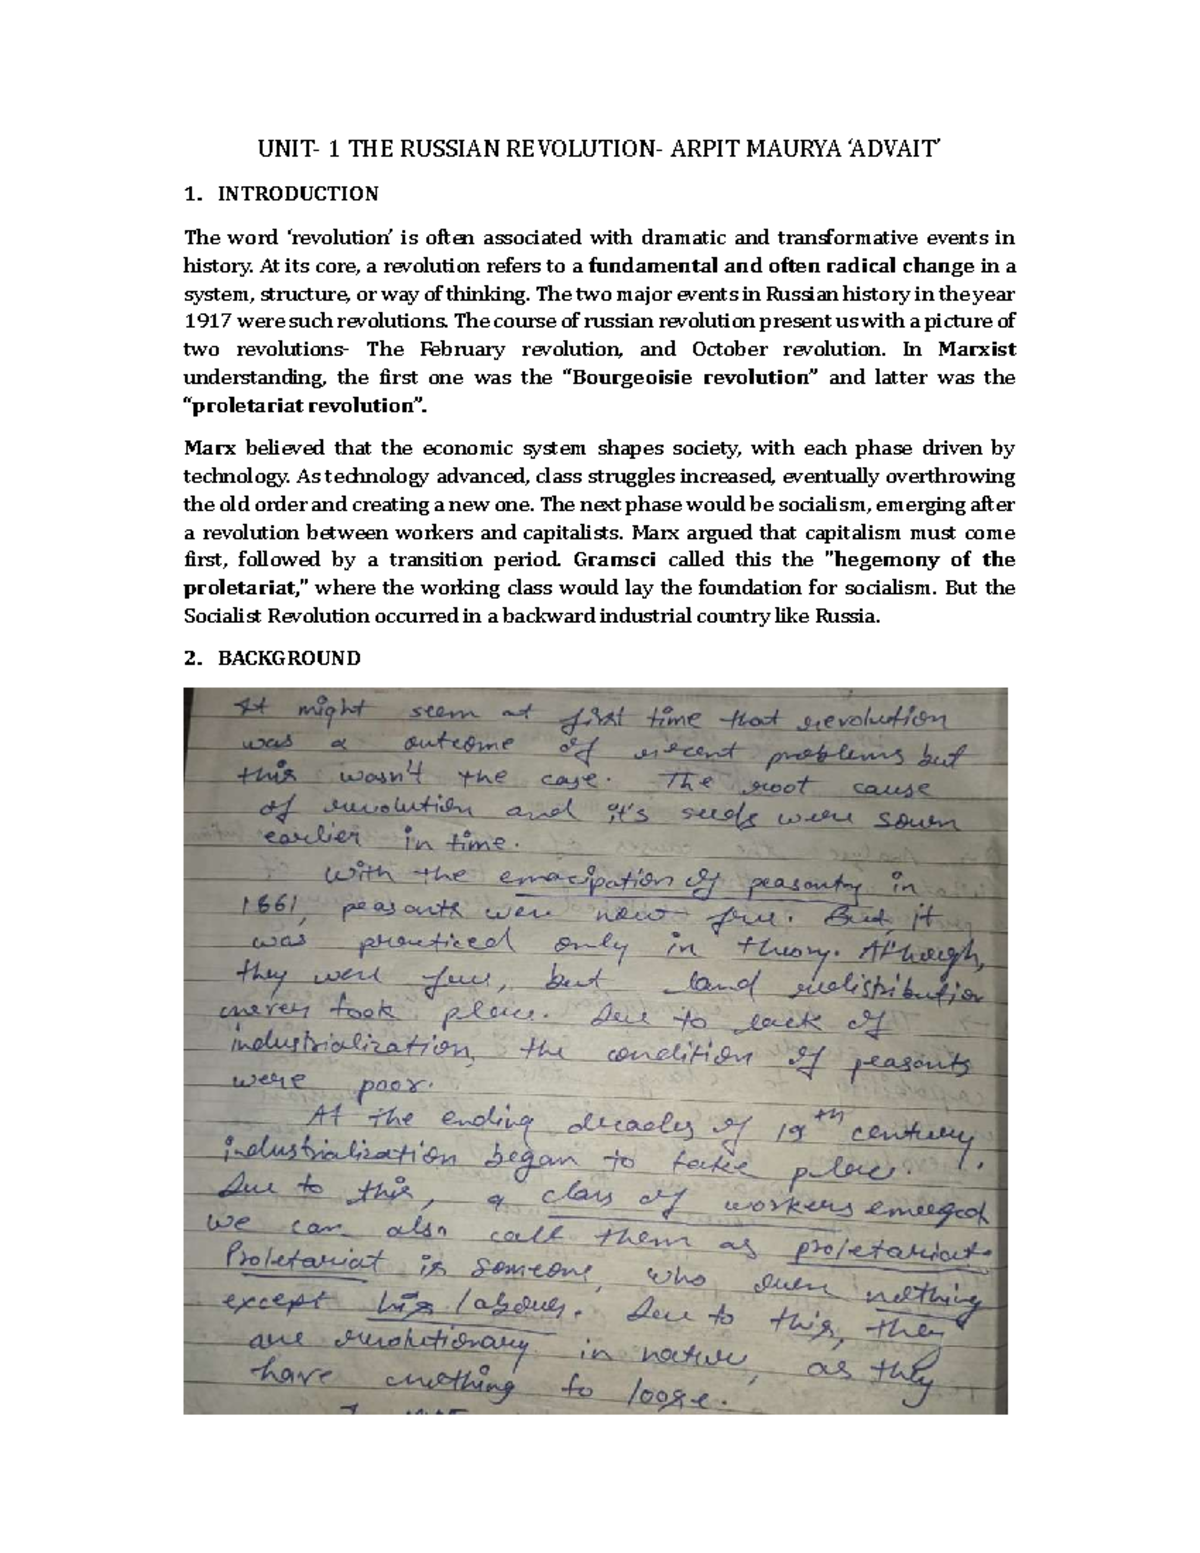 UNIT- 1 THE RUSSIAN REVOLUTION- ARPIT MAURYA ‘ADVAIT’
1. INTRODUCTION
The word ‘revolution’ is often associated with dramatic and transformative events in
history. At its core, a revolution refers to a fundamental and often radical change in a
system, structure, or way of thinking. The two major events in Russian history in the year
1917 were such revolutions. The course of russian revolution present us with a picture of
two revolutions- The February revolution, and October revolution. In Marxist
understanding, the first one was the “Bourgeoisie revolution” and latter was the
“proletariat revolution”.
Marx believed that the economic system shapes society, with each phase driven by
technology. As technology advanced, class struggles increased, eventually overthrowing
the old order and creating a new one. The next phase would be socialism, emerging after
a revolution between workers and capitalists. Marx argued that capitalism must come
first, followed by a transition period. Gramsci called this the "hegemony of the
proletariat," where the working class would lay the foundation for socialism. But the
Socialist Revolution occurred in a backward industrial country like Russia.
2. BACKGROUND
It might seem at first time that revolution
was a outcome of recent problems but
this wasn't the case. The root cause
of revolution and it's seeds were sown
earlier in time.
With the emacipation of peasantry in
1861, peasants were now free. But, it
was practiced only in theory. Although,
they were free, but land redistribution
never took place. Due to lack of
industrialization, the condition of peasants
were poor.
At the ending decades of 19th century,
industrialization began to take place.
Due to this, a class of workers emerged
we can also call them as proletariat.
Proletariat is someone, who own nothing
except his labour. Due to this, they
are revolutionary in nature, as they
have nothing to loose.